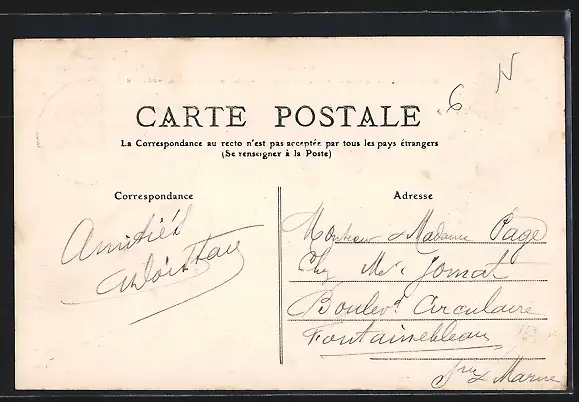 6 N
CARTE POSTALE
La Correspondance au recto n'est pas acceptée par tous les pays étrangers
(Se renseigner à la Poste)
Correspondance
Amitiés
Adresse
Monsieur & Madame Page
Chez Mr Jomat
Boulevd Circulaire
Fontainebleau
Sne & Marne